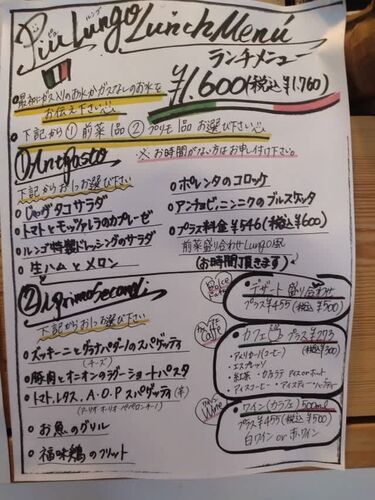 Più Lungo Lunch Menú
ランチメニュー
¥1,600(税込¥1,760)
・最初にガス入りのお水かガスなしのお水を
お伝え下さい
・下記から①前菜1品②プリモ1品お選び下さい
※お時間がない方はお申し付け下さい。
①Antipasto
下記からお1つお選び下さい
・ジャガタコサラダ
・トマトとモッツァレラのカプレーゼ
・ルンゴ特製ドレッシングのサラダ
・生ハムとメロン
・ポレンタのコロッケ
・アンチョビ,ニンニクのブルスケッタ
・プラス料金¥546(税込¥600)
前菜盛り合わせLungo風
(お時間頂きます)
②Primo Secondi
下記からお1つお選び下さい
・ズッキーニとグラナパダーノのスパゲッティ
(チーズ)
・豚肉とオニオンのラグーショートパスタ
・トマト,レタス,A.O.Pスパゲッティ(辛)
(アーリオ・オーリオ・ペペロンチーノ)
・お魚のグリル
・福味鶏のフリット
Dolce
・デザート盛り合わせ
プラス¥455(税込¥500)
Caffè
・カフェ プラス¥273
(税込¥300)
・アメリカーノ(コーヒー)
・エスプレッソ
・紅茶・カフェラテ ice or hot
・アイスコーヒー・アイスティー
Wine
・ワイン(カラフェ)500ml
プラス¥455(税込¥500)
白ワイン or 赤ワイン